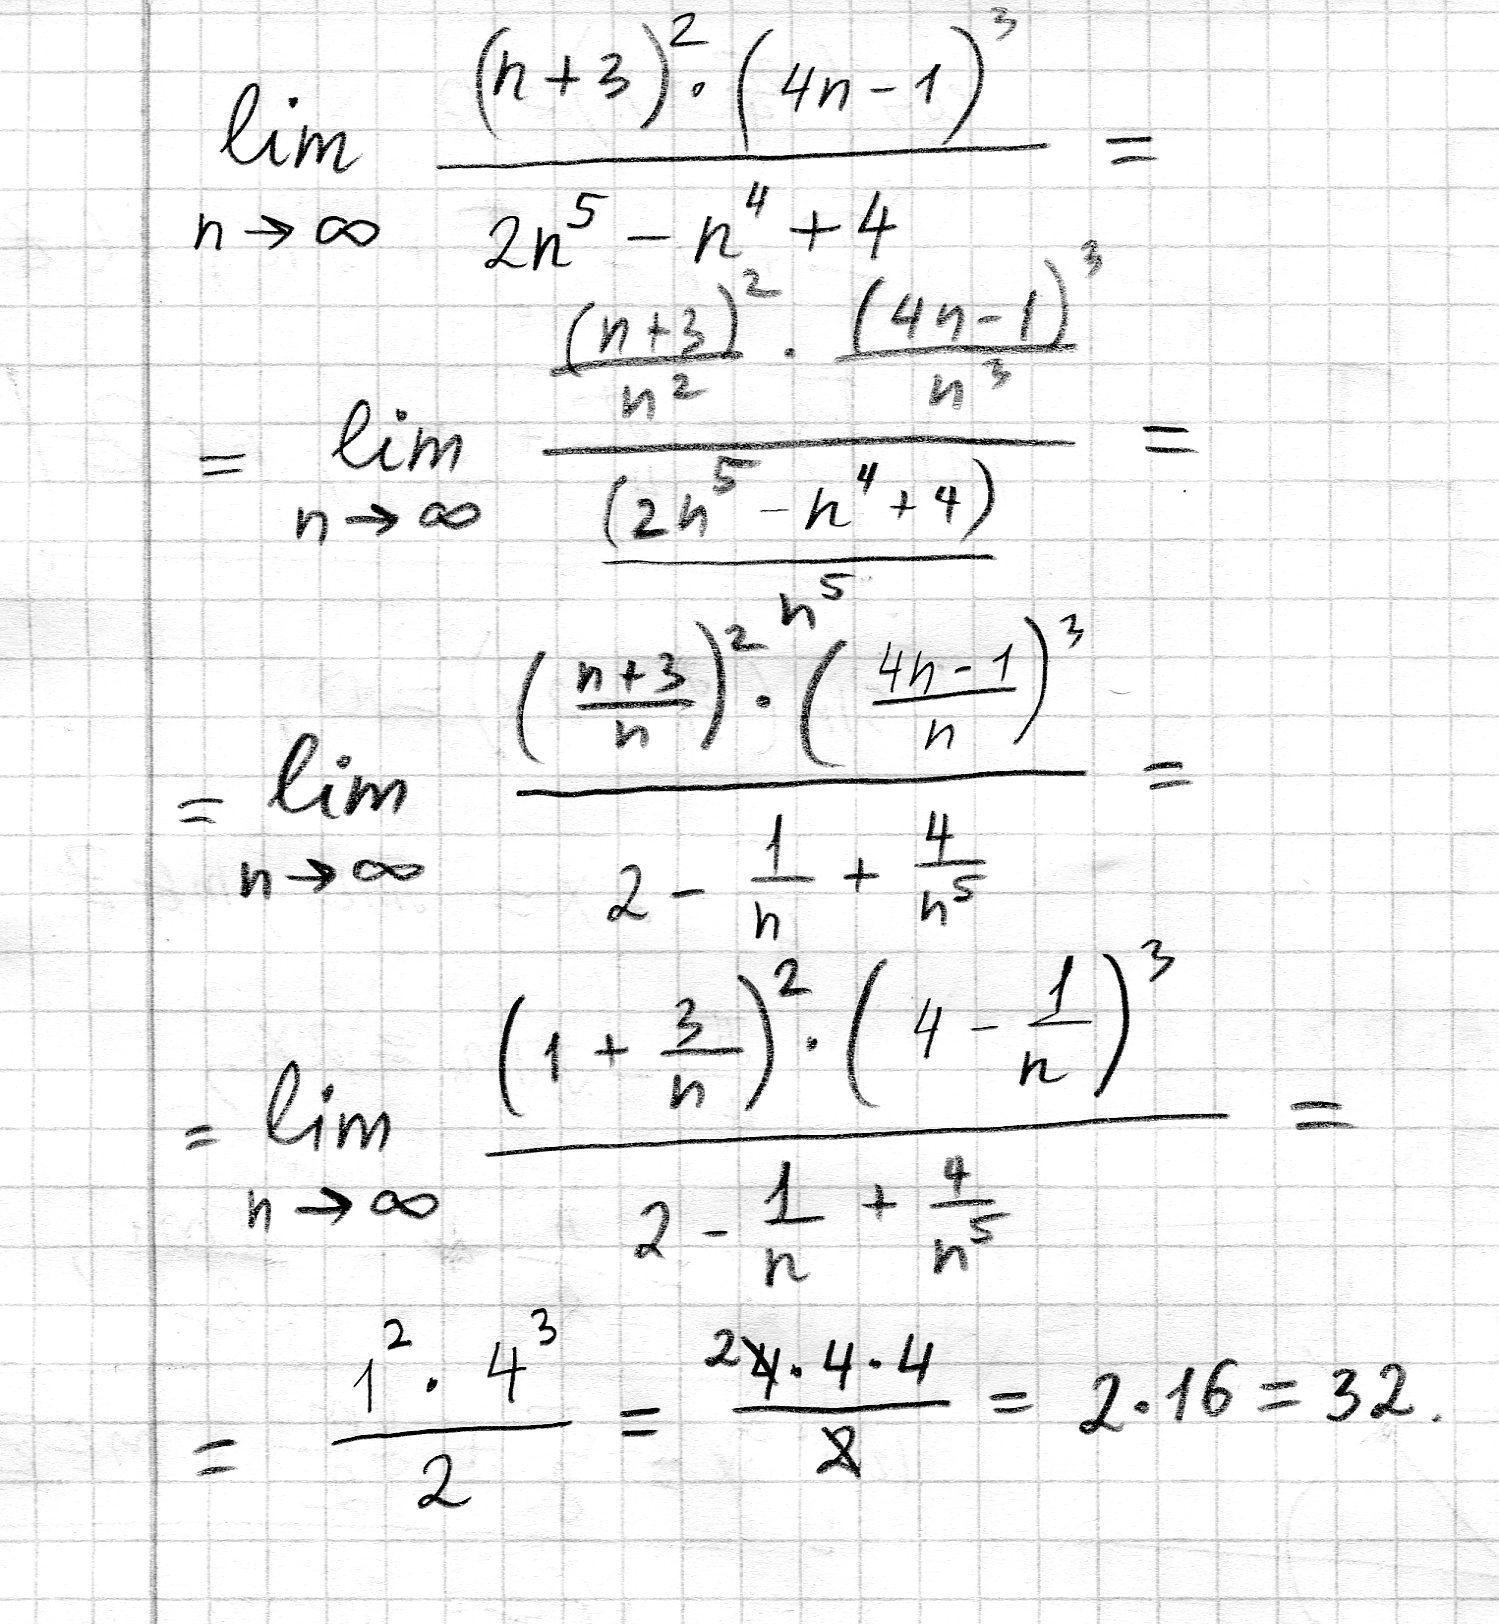 lim n→∞ (n+3)²·(4n-1)³ / 2n⁵ - n⁴ + 4 =
= lim n→∞ (n+3)²/n² · (4n-1)³/n³ / (2n⁵ - n⁴ + 4)/n⁵ =
= lim n→∞ ((n+3)/n)²·((4n-1)/n)³ / 2 - 1/n + 4/n⁵ =
= lim n→∞ (1 + 3/n)²·(4 - 1/n)³ / 2 - 1/n + 4/n⁵ =
= 1²·4³ / 2 = 2 4·4·4 / 2 = 2·16 = 32.